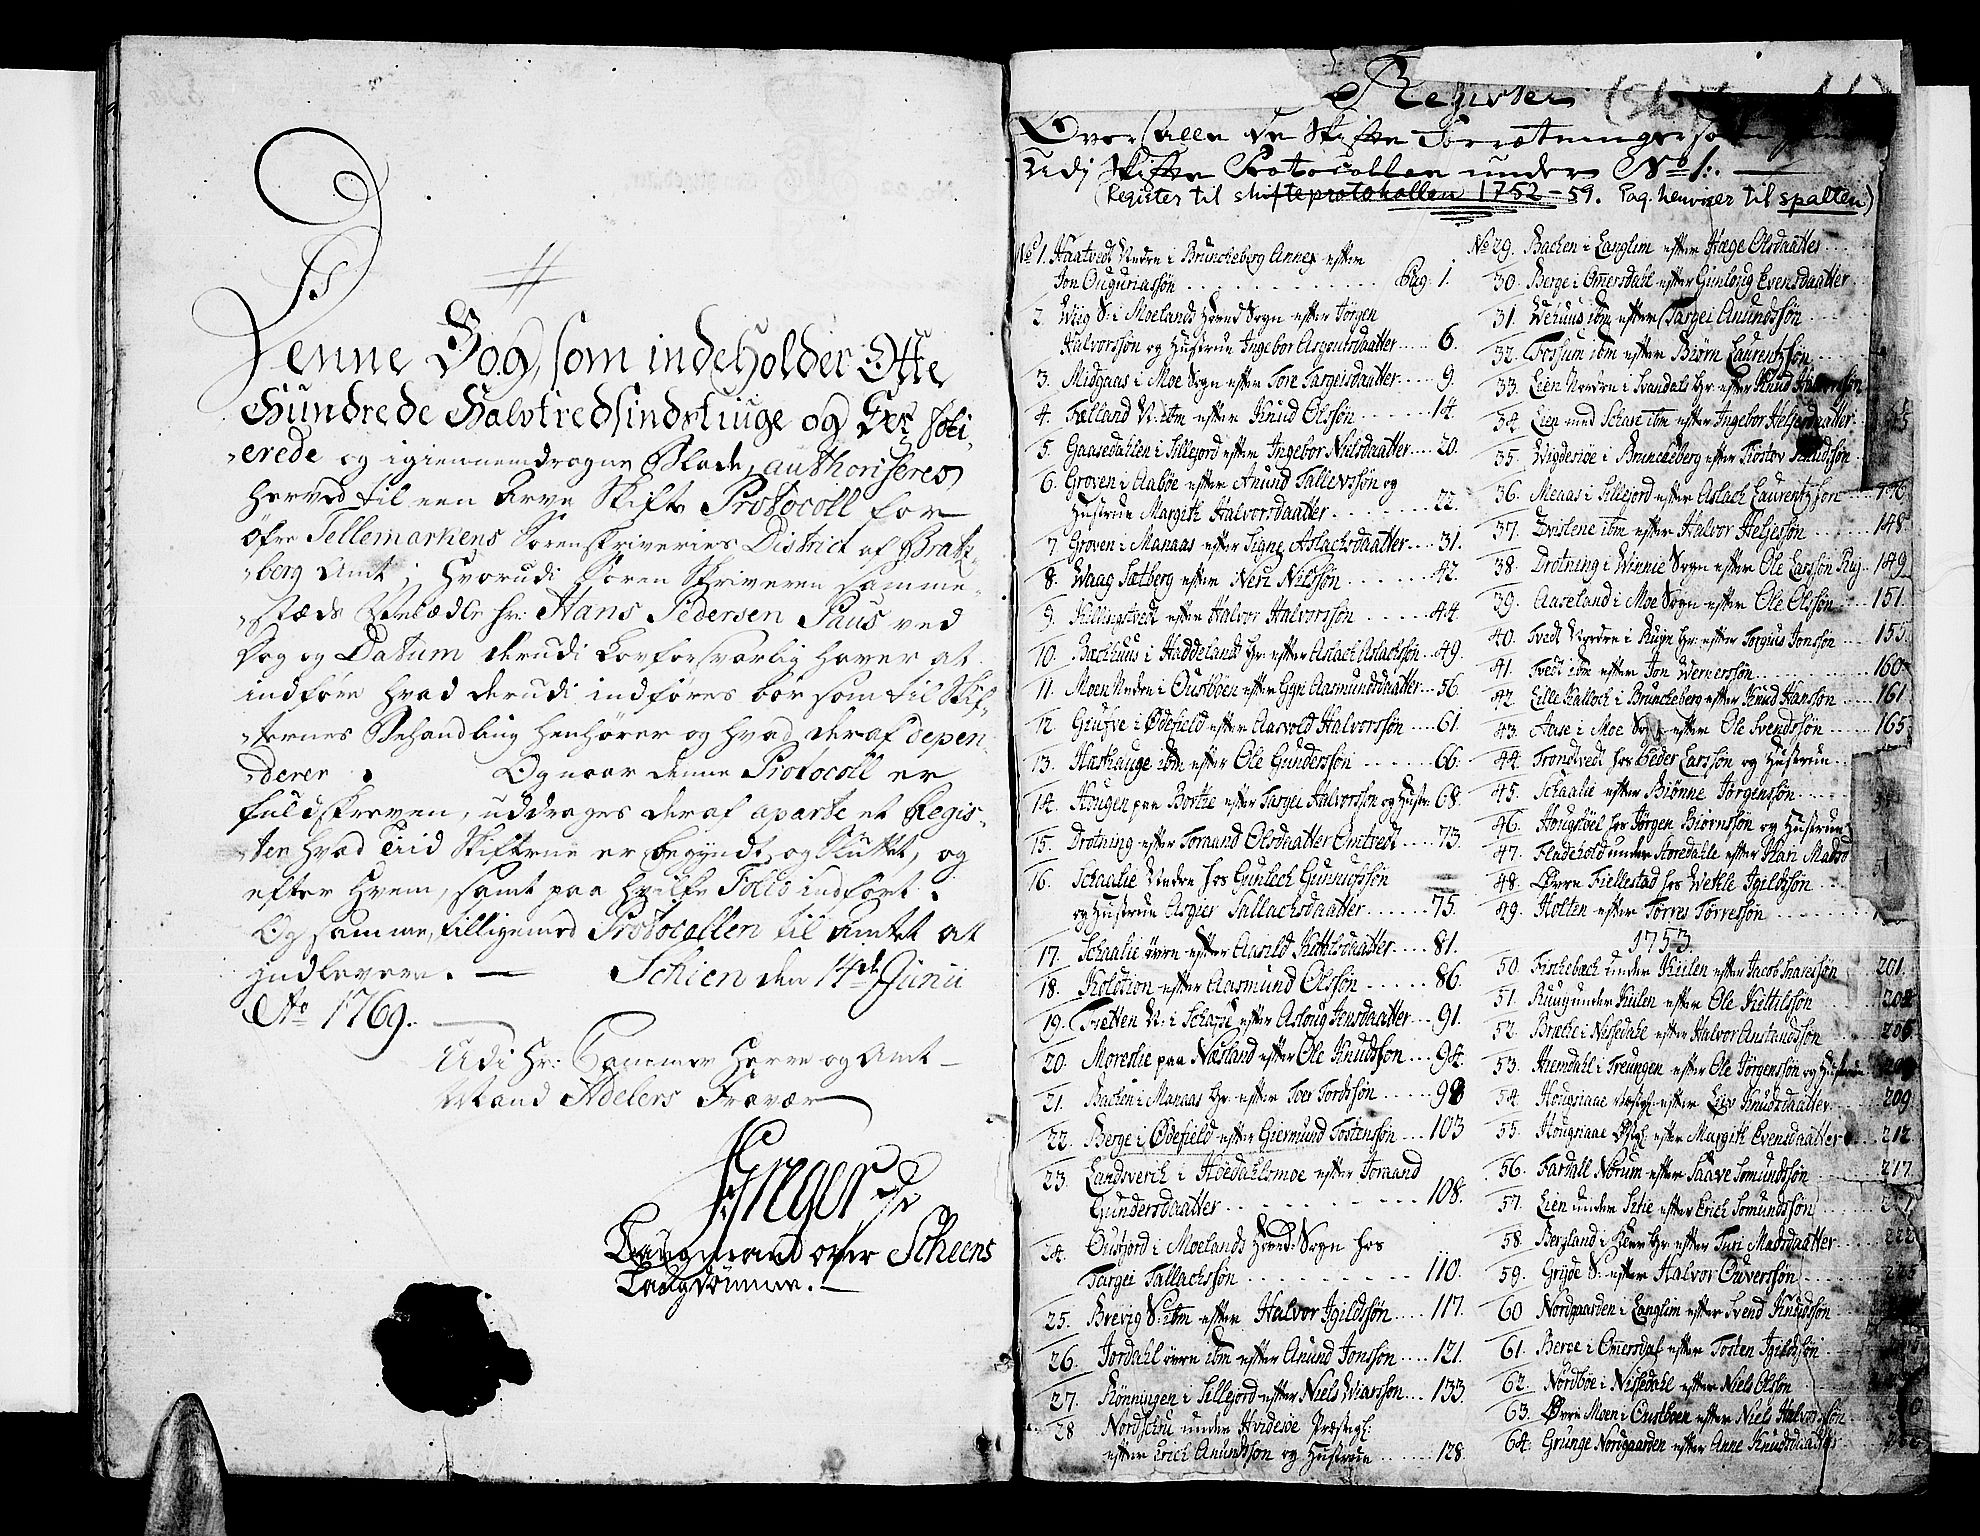 Denne Bog, som indeholder Otte
Hundrede Halvtredsindstiuge og Sex foli-
-erede og igiennemdragne Blade, authoriseres
herved til een Arve Skifte Protocoll for
Øfre Tellemarkens Sorenskriveries District af Bratz-
-berg Amt; hvorudi Soren Skriveren samme-
-stæds Velædle hr: Hans Pedersen Paus ved
Dag og Datum derudi Lovforsvarlig haver at
indføre hvad derudi indføres bør som til Skif-
-ternes Behandling henhører og hvad deraf depen-
-derer. Og naar denne Protocoll er
fuldskreven, uddrages deraf aparte et Regis-
-ter hvad Tiid Skifterne er begyndt og Sluttet, og
efter hvem, samt paa hvilke Folio indført.
Og samme, tilligemed Protocollen til Amtet at
indlevere. — Schien den 14de Junii
Ao 1769.
Udi Hr: Cammer Herre og Amt-
Mand Adelers Fravær
Laugmand over Scheens
Laugdømme. —
Register
Over alle de Skifte Forrætninger som
udj Skifte Protocollen under No 1.
(Register til skifteprotokollen 1752-59. Pag. henviser til spalten)
No 1. Haatvedt Nedre i Brunckeberg Annex efter
Jon Ouguriassøn . . . Pag. 1.
2. Wiig S: i Moelands Hoved Sogn efter Jørgen
Halvorssøn og Hustrue Ingebor Asgoutsdaatter . . . 6.
3. Midgaas i Moe Sogn efter Tore Targeisdaatter . . . 9.
4. Fælland N: ibm efter Knud Olssøn . . . 14.
5. Gaasedahlen i Sillejord efter Ingebor Nilsdaatter . . . 20.
6. Groven i Aabøe efter Anund Tallevssøn og
Hustrue Margith Halvorsdaatter . . . 22.
7. Groven i Manaas efter Signe Aslachsdaatter . . . 31.
8. Waag Sætberg efter Neri Nilssøn . . . 42.
9. Killingtvedt efter Halvor Halvorssøn . . . 44.
10. Bachhuus i Haddelands Gr: efter Aslach Aslachssøn . . 49.
11. Moen Nedre i Oustbøen efter Gyri Aasmundsdaatter . . 56.
12. Giufve i Ødefield efter Aarvold Halvorssøn . . . 61.
13. Harhauge ibm efter Ole Gunderssøn . . . 66.
14. Hougen paa Borthe efter Targei Halvorssøn og Hustr: 68.
15. Drotning efter Toraand Olsdaatter Omtvedt . . . 73.
16. Schaalie Nedre hos Gunlech Gunnufssøn
og Hustrue Asgier Tallachsdaatter . . . 75.
17. Schaalie øvre efter Aasild Kittilsdaatter . . . 81.
18. Kolotion efter Aasmund Olssøn . . . 86.
19. Tvetten N: i Schafse efter Asloug Jensdaatter . . . 91.
20. Moreslie paa Næsland efter Ole Knudssøn . . . 94.
21. Bachen i Manaas Gr: efter Toer Tordssøn . . . 98
22. Berge i Ødefield efter Giermund Tostenssøn . . . 103
23. Landsverch i Høedahlsmoe efter Joraand
Gundersdaatter . . . 108.
24. Ousfjord i Moelands Hoved: Sogn hos
Targei Tallachssøn . . . 110.
25. Brevig S: ibm efter Halvor Igildssøn . . . 117.
26. Jordahl øvre ibm efter Anund Jonssøn . . . 121.
27. Rønningen i Sillejord efter Niels Wiarssøn . . . 133.
28 Nordschou under Hvidesøe Præstegl:
efter Erich Anundssøn og Hustrue . . . 128.
No 29. Bachen i Langlim efter Hæge Olsdaatter . . .
30. Berge i Omersdahl efter Gunloug Evensdaatter . . .
31. Wehuus ibm efter Targei Anundssøn . . .
32. Fossum ibm efter Biørn Laurentzsøn . . .
33. Lien Nordre i Svandals Gr: efter Knud Halvorssøn
34. Lien med Schare ibm efter Ingebor Heljesdaatter . . .
35. Wigdesiøe i Brunckeberg efter Kiøstov Knudssøn . . .
36. Meaas i Sillejord efter Aslach Laurentzsøn . . . 146
37. Dvislene ibm efter Halvor Heljesøn . . . 148.
38. Drotning i Winnie Sogn efter Ole Larssøn Ruj . . 149
39. Aaseland i Moe Sogn efter Ole Olssøn . . . 151.
40. Tvedt Nedre i Ruyn Gr: efter Torgius Jonssøn . . . 155.
41. Tvedt ibm efter Jon Wernerssøn . . . 160
42. Lille Kalloch i Brunckeberg efter Knud Hanssøn . . . 161
43. Aase i Moe Sogn efter Ole Svendssøn . . . 165
44. Trondtvedt hos Peder Larssøn og Hustrue . . .
45. Schaalie efter Biønne Jørgenssøn . . .
46. Hougshøl hos Jørgen Biørnssøn og Hustrue
47. Fladehold under Storedahle efter Kari Madsd
48. Øvre Fiellestad hos Wetle Igildssøn . . .
49. Holten efter Torres Torressøn . . .
1753.
50. Fischebech under Kiilen efter Jacob Isaacssøn 201.
51. Ruug under Kiilen efter Ole Kittilssøn . . . 204
52. Bræche i Nissedahl efter Halvor Anstendssøn . . . 206
53. Hiemdahl i Treungen efter Ole Jørgenssøn og Hustrue
54. Hougsiaae Vestgl: efter Liv Knudsdaatter . . . 209
55. Hougsiaae Østgl: efter Margith Evensdaatter . . . 212
56. Fardall Norum efter Saave Somundssøn . . . 217
57. Lien under Sitie efter Erich Somundssøn . . .
58. Bergland i Herr Gr: efter Turi Madsdaatter . . . 222
59. Grijde S: efter Halvor Ouverssøn . . . 225
60 Nordgaarden i Langlim efter Svend Knudssøn . . .
61. Berge i Omersdal efter Tosten Igildssøn . . .
62. Nordbøe i Nissedahl efter Niels Olssøn
63. Øvre Moen i Oustbøen efter Niels Halvorssøn . . .
64. Grunge Nordgaarden efter Anne Knudsdaatter